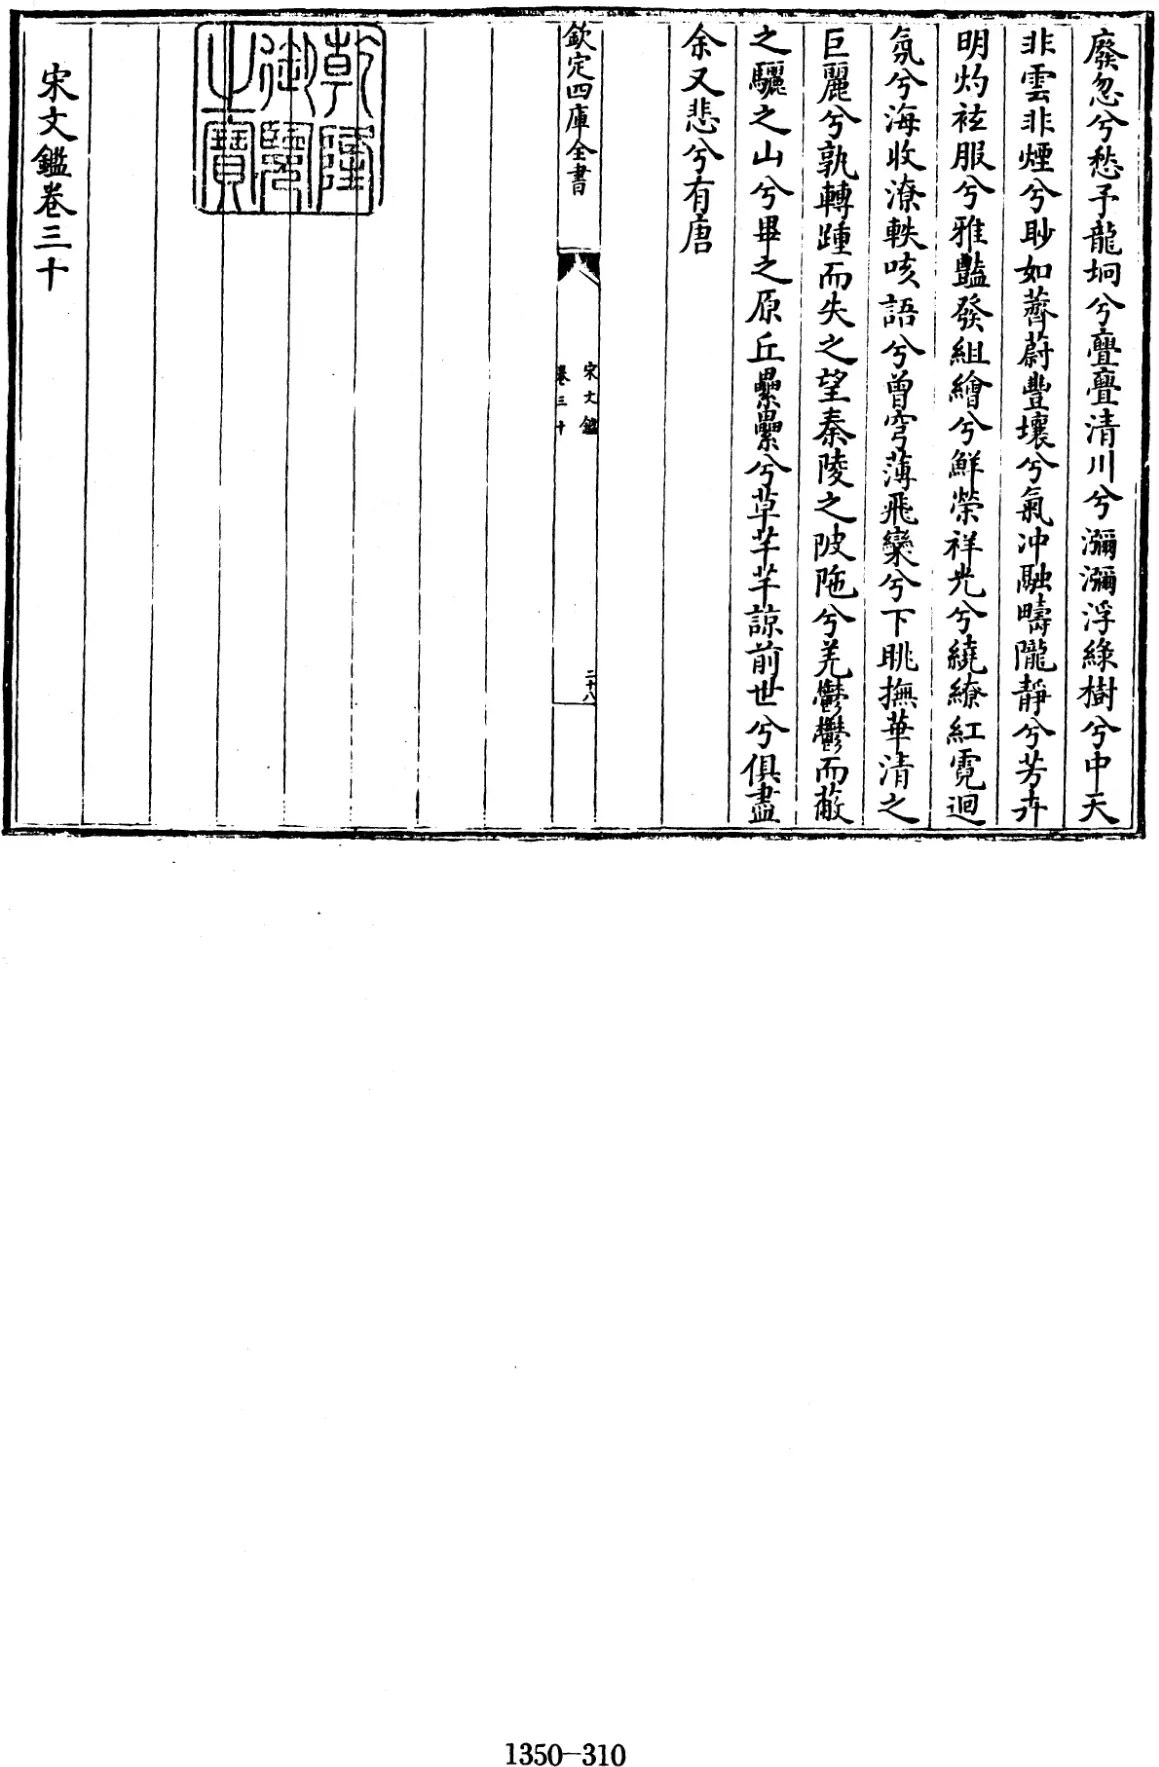 廢忽兮愁予龍坰兮亹亹清川兮瀰瀰浮綠樹兮中天
非雲非煙兮眇如薺蔚豐壤兮氣冲融疇隴靜兮芳卉
明灼袨服兮雅豔發組繪兮鮮榮祥光兮繞繚紅霓迴
氛兮海收潦軼咳語兮曾穹薄飛欒兮下眺撫華清之
巨麗兮孰轉踵而失之望秦陵之陂陁兮羌鬱鬱而蔽
之驪之山兮畢之原丘纍纍兮草芊芊諒前世兮俱盡
余又悲兮有唐
欽定四庫全書
宋文鑑
卷三十
二十八
乾隆御覽之寶
宋文鑑卷三十
1350—310